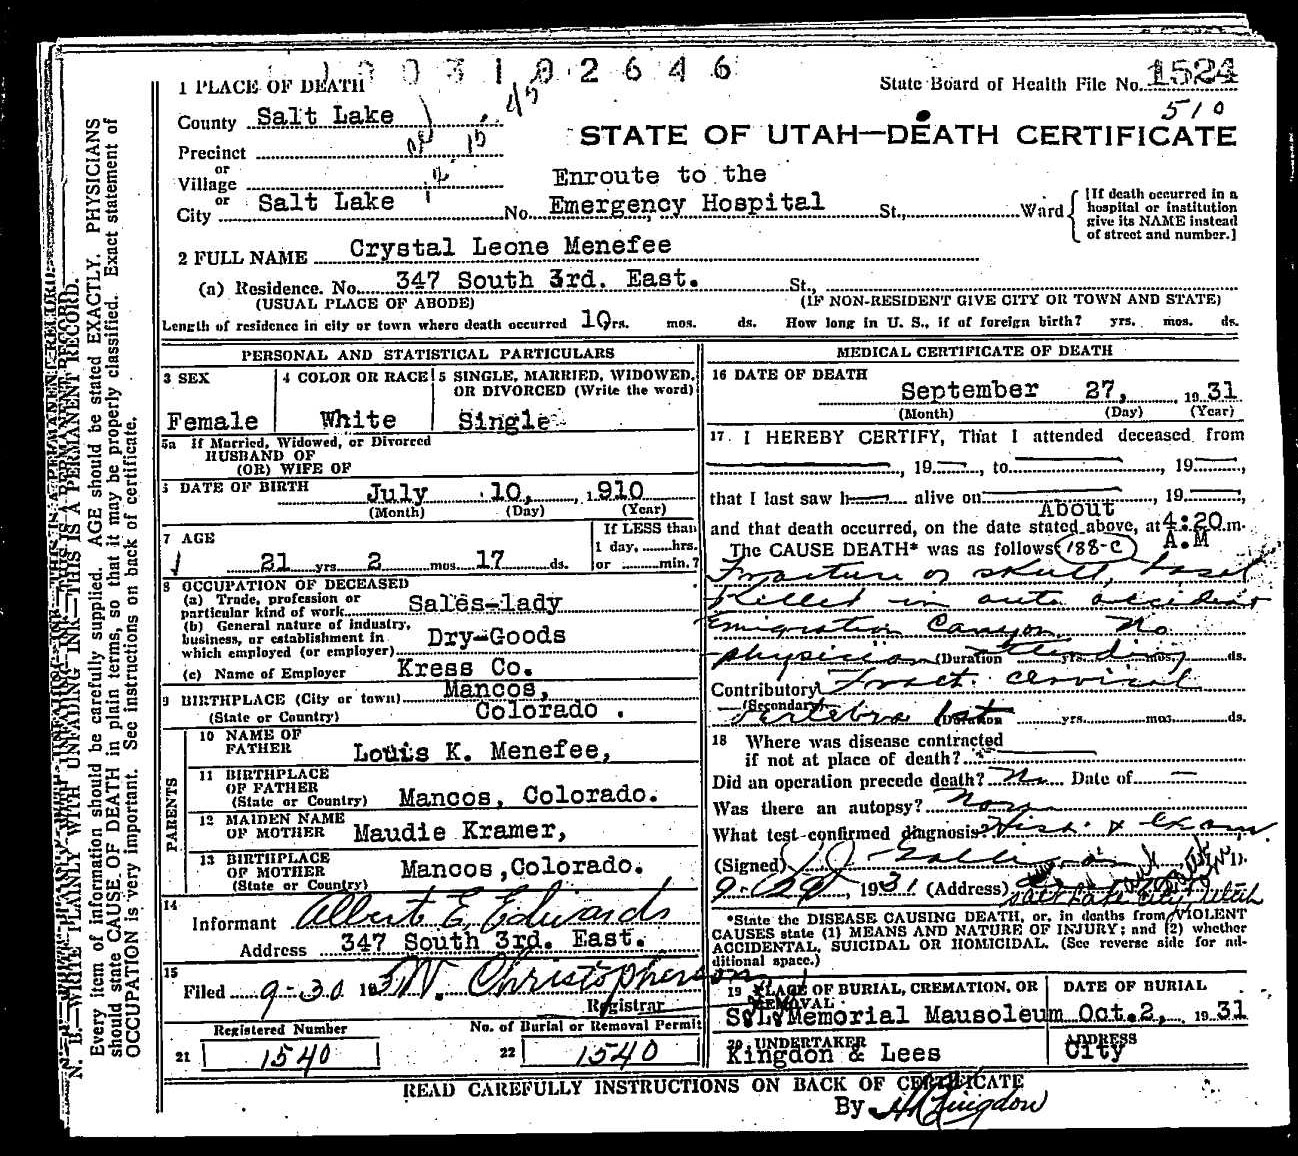 1003102646
1 PLACE OF DEATH
State Board of Health File No. 1524
510
County Salt Lake
STATE OF UTAH—DEATH CERTIFICATE
Precinct
or
Village
Enroute to the
or
City Salt Lake No. Emergency Hospital St., Ward
[If death occurred in a
hospital or institution
give its NAME instead
of street and number.]
2 FULL NAME Crystal Leone Menefee
(a) Residence. No. 347 South 3rd. East. St.,
(USUAL PLACE OF ABODE) (IF NON-RESIDENT GIVE CITY OR TOWN AND STATE)
Length of residence in city or town where death occurred 10 yrs. mos. ds. How long in U. S., if of foreign birth? yrs. mos. ds.
PERSONAL AND STATISTICAL PARTICULARS
3 SEX
Female
4 COLOR OR RACE
White
5 SINGLE, MARRIED, WIDOWED,
OR DIVORCED (Write the word)
Single
5a If Married, Widowed, or Divorced
HUSBAND OF
(OR) WIFE OF
DATE OF BIRTH July 10, 1910
(Month) (Day) (Year)
7 AGE
21 yrs 2 mos. 17 ds.
If LESS than
1 day, hrs.
or min.?
8 OCCUPATION OF DECEASED
(a) Trade, profession or
particular kind of work Sales-lady
(b) General nature of industry,
business, or establishment in
which employed (or employer) Dry-Goods
(c) Name of Employer Kress Co.
9 BIRTHPLACE (City or town) Mancos,
(State or Country) Colorado .
PARENTS
10 NAME OF
FATHER Louis K. Menefee,
11 BIRTHPLACE
OF FATHER
(State or Country) Mancos, Colorado.
12 MAIDEN NAME
OF MOTHER Maudie Kramer,
13 BIRTHPLACE
OF MOTHER
(State or Country) Mancos,Colorado.
14
Informant Albert E. Edwards
Address 347 South 3rd. East.
15
Filed 9-30 193 W. Christopherson
Registrar
Registered Number
21 1540
No. of Burial or Removal Permit
22 1540
MEDICAL CERTIFICATE OF DEATH
16 DATE OF DEATH
September 27, 1931
(Month) (Day) (Year)
17. I HEREBY CERTIFY, That I attended deceased from
, 19 , to , 19 ,
that I last saw h alive on , 19 ,
About
and that death occurred, on the date stated above, at 4:20 m.
A.M
The CAUSE DEATH* was as follows: 188-C
Fracture of skull, basal
Killed in auto accident
Emigration Canyon No
physician attending
(Duration yrs. mos. ds.
Contributory Fract. cervical
(Secondary)
vertebra 1st
(Duration yrs. mos. ds.
18 Where was disease contracted
if not at place of death?
Did an operation precede death? No Date of —
Was there an autopsy? None
What test confirmed diagnosis? Hist. & Exam
(Signed)
9-29, 1931 (Address)
Salt Lake City, Utah
*State the DISEASE CAUSING DEATH, or, in deaths from VIOLENT
CAUSES state (1) MEANS AND NATURE OF INJURY; and (2) whether
ACCIDENTAL, SUICIDAL OR HOMICIDAL. (See reverse side for additional space.)
19 PLACE OF BURIAL, CREMATION, OR
REMOVAL
S.L. Memorial Mausoleum
DATE OF BURIAL
Oct. 2, 1931
20 UNDERTAKER
Kingdon & Lees
ADDRESS
City
READ CAREFULLY INSTRUCTIONS ON BACK OF CERTIFICATE
By
N. B.—WRITE PLAINLY WITH UNFADING INK—THIS IS A PERMANENT RECORD.
Every item of information should be carefully supplied. AGE should be stated EXACTLY. PHYSICIANS
should state CAUSE OF DEATH in plain terms, so that it may be properly classified. Exact statement of
OCCUPATION is very important. See instructions on back of certificate.